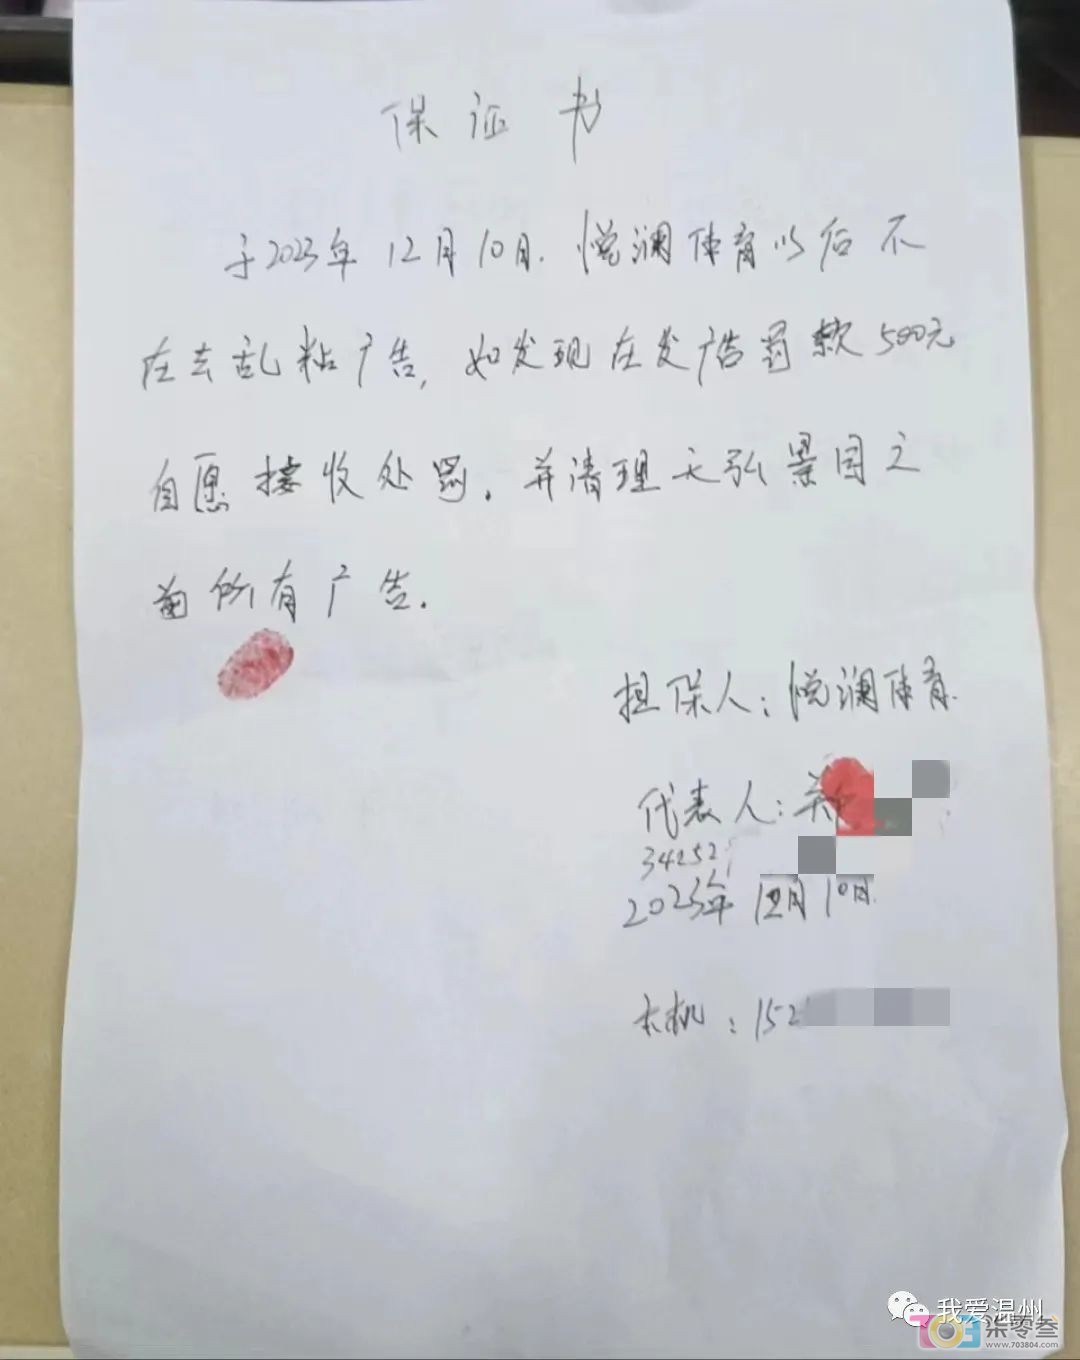 保证书
于2023年12月10日.悦澜体育以后不
在去乱粘广告,如发现在发广告罚款500元
自愿接收处罚.并清理天弘景园之
前所有广告.
担保人:悦澜体育.
代表人:郑
34252
2023年12月10日.
本机:152
我爱温州
703 柒零叁
www.703804.com